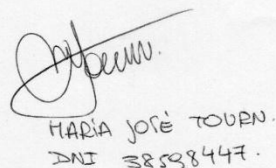 MARÍA JOSÉ TOURN.
DNI 38598447.